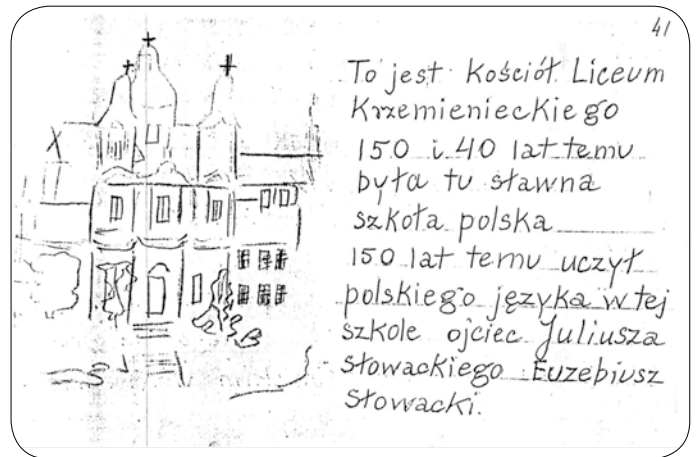 41
To jest Kościół Liceum
Krzemienieckiego
150 i 40 lat temu
była tu sławna
szkoła polska
150 lat temu uczył
polskiego języka w tej
szkole ojciec Juliusza
Słowackiego Euzebiusz
Słowacki.